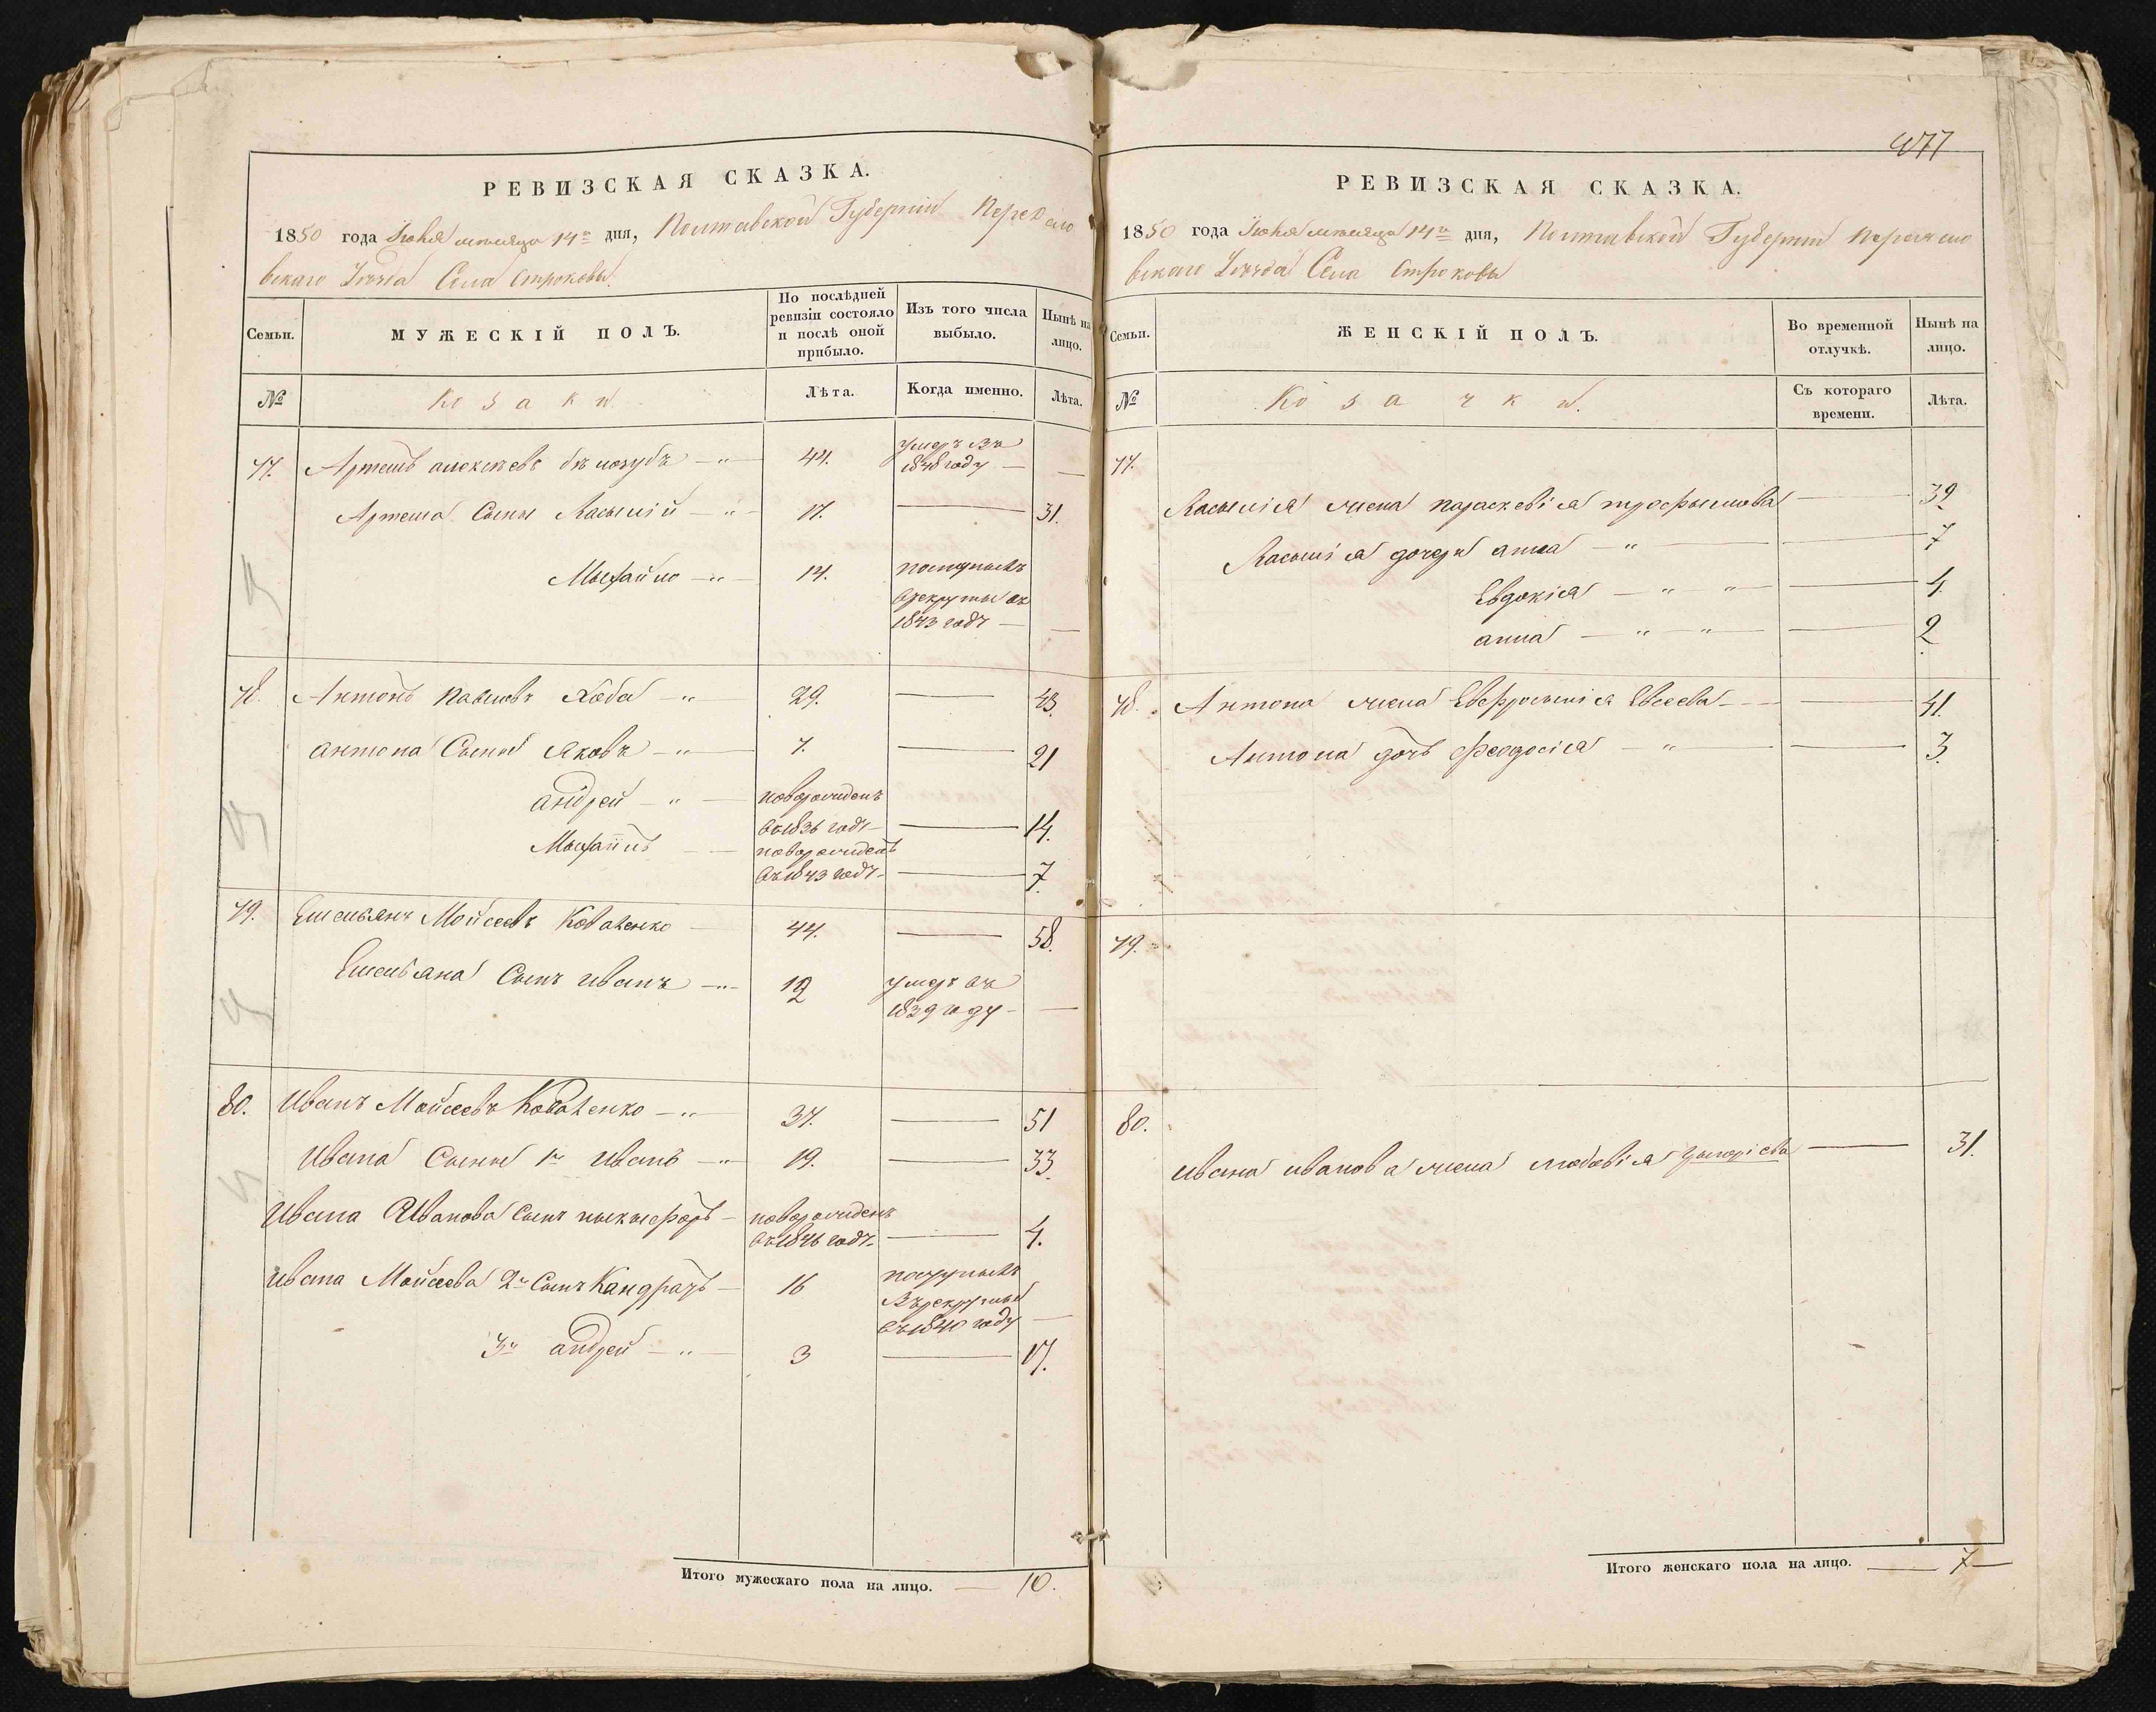 РЕВИЗСКАЯ СКАЗКА.
1850 года Іюня мѣсяца 14го дня, Полтавской Губерніи Переясло
вскаго Уѣзда Села Строковы.
Семьи.
МУЖЕСКІЙ ПОЛЪ.
По послѣдней ревизіи состояло и послѣ оной прибыло.
Изъ того числа выбыло.
Нынѣ на лицо.
№
Козаки
Лѣта.
Когда именно.
Лѣта.
77. Артемъ алексѣевъ бѣлозубъ 44. умеръ въ
1848 году —
Артема Сыны Василій 17. — 31.
Михайло 14. поступилъ
врекруты въ
1843 годѣ —
78. Антонъ павловъ 29. — 43.
антона Сыны яковъ 7. — 21
андрей новорожденъ
въ1836 годѣ — 14.
Михаилъ новорожденъ
въ1843 годѣ — 7.
79. Емельянъ Мойсеевъ Коваленко 44. — 58.
Емельяна Сынъ иванъ 12 умеръ въ
1839 году —
80. Иванъ Мойсеевъ Коваленко 37. — 51
Ивана Сыны 1й Иванъ 19. — 33.
Ивана Иванова Сынъ никифоръ новорожденъ
въ1846 годѣ — 4.
Ивана Мойсеева 2й Сынъ Кандратъ 16 поступилъ
Върекруты
въ1840 году —
3й андрей 3 — 17.
Итого мужескаго пола на лицо. — 10.
477
РЕВИЗСКАЯ СКАЗКА.
1850 года Іюня мѣсяца 14го дня, Полтавской Губерніи Переясло
вскаго Уѣзда Села Строковы
Семьи.
ЖЕНСКІЙ ПОЛЪ.
Во временной отлучкѣ.
Нынѣ на лицо.
№
Козачки.
Съ котораго времени.
Лѣта.
77.
Василія жена параскевія трофымова — 39
Василія дочери анна — 7
Евдокія — 4.
анна — 2.
78. Антона жена Евфросинія Евсеева — 41.
Антона дочь феодосія — 3.
79.
80.
Ивана иванова жена — 31.
Итого женскаго пола на лицо. — 7 —